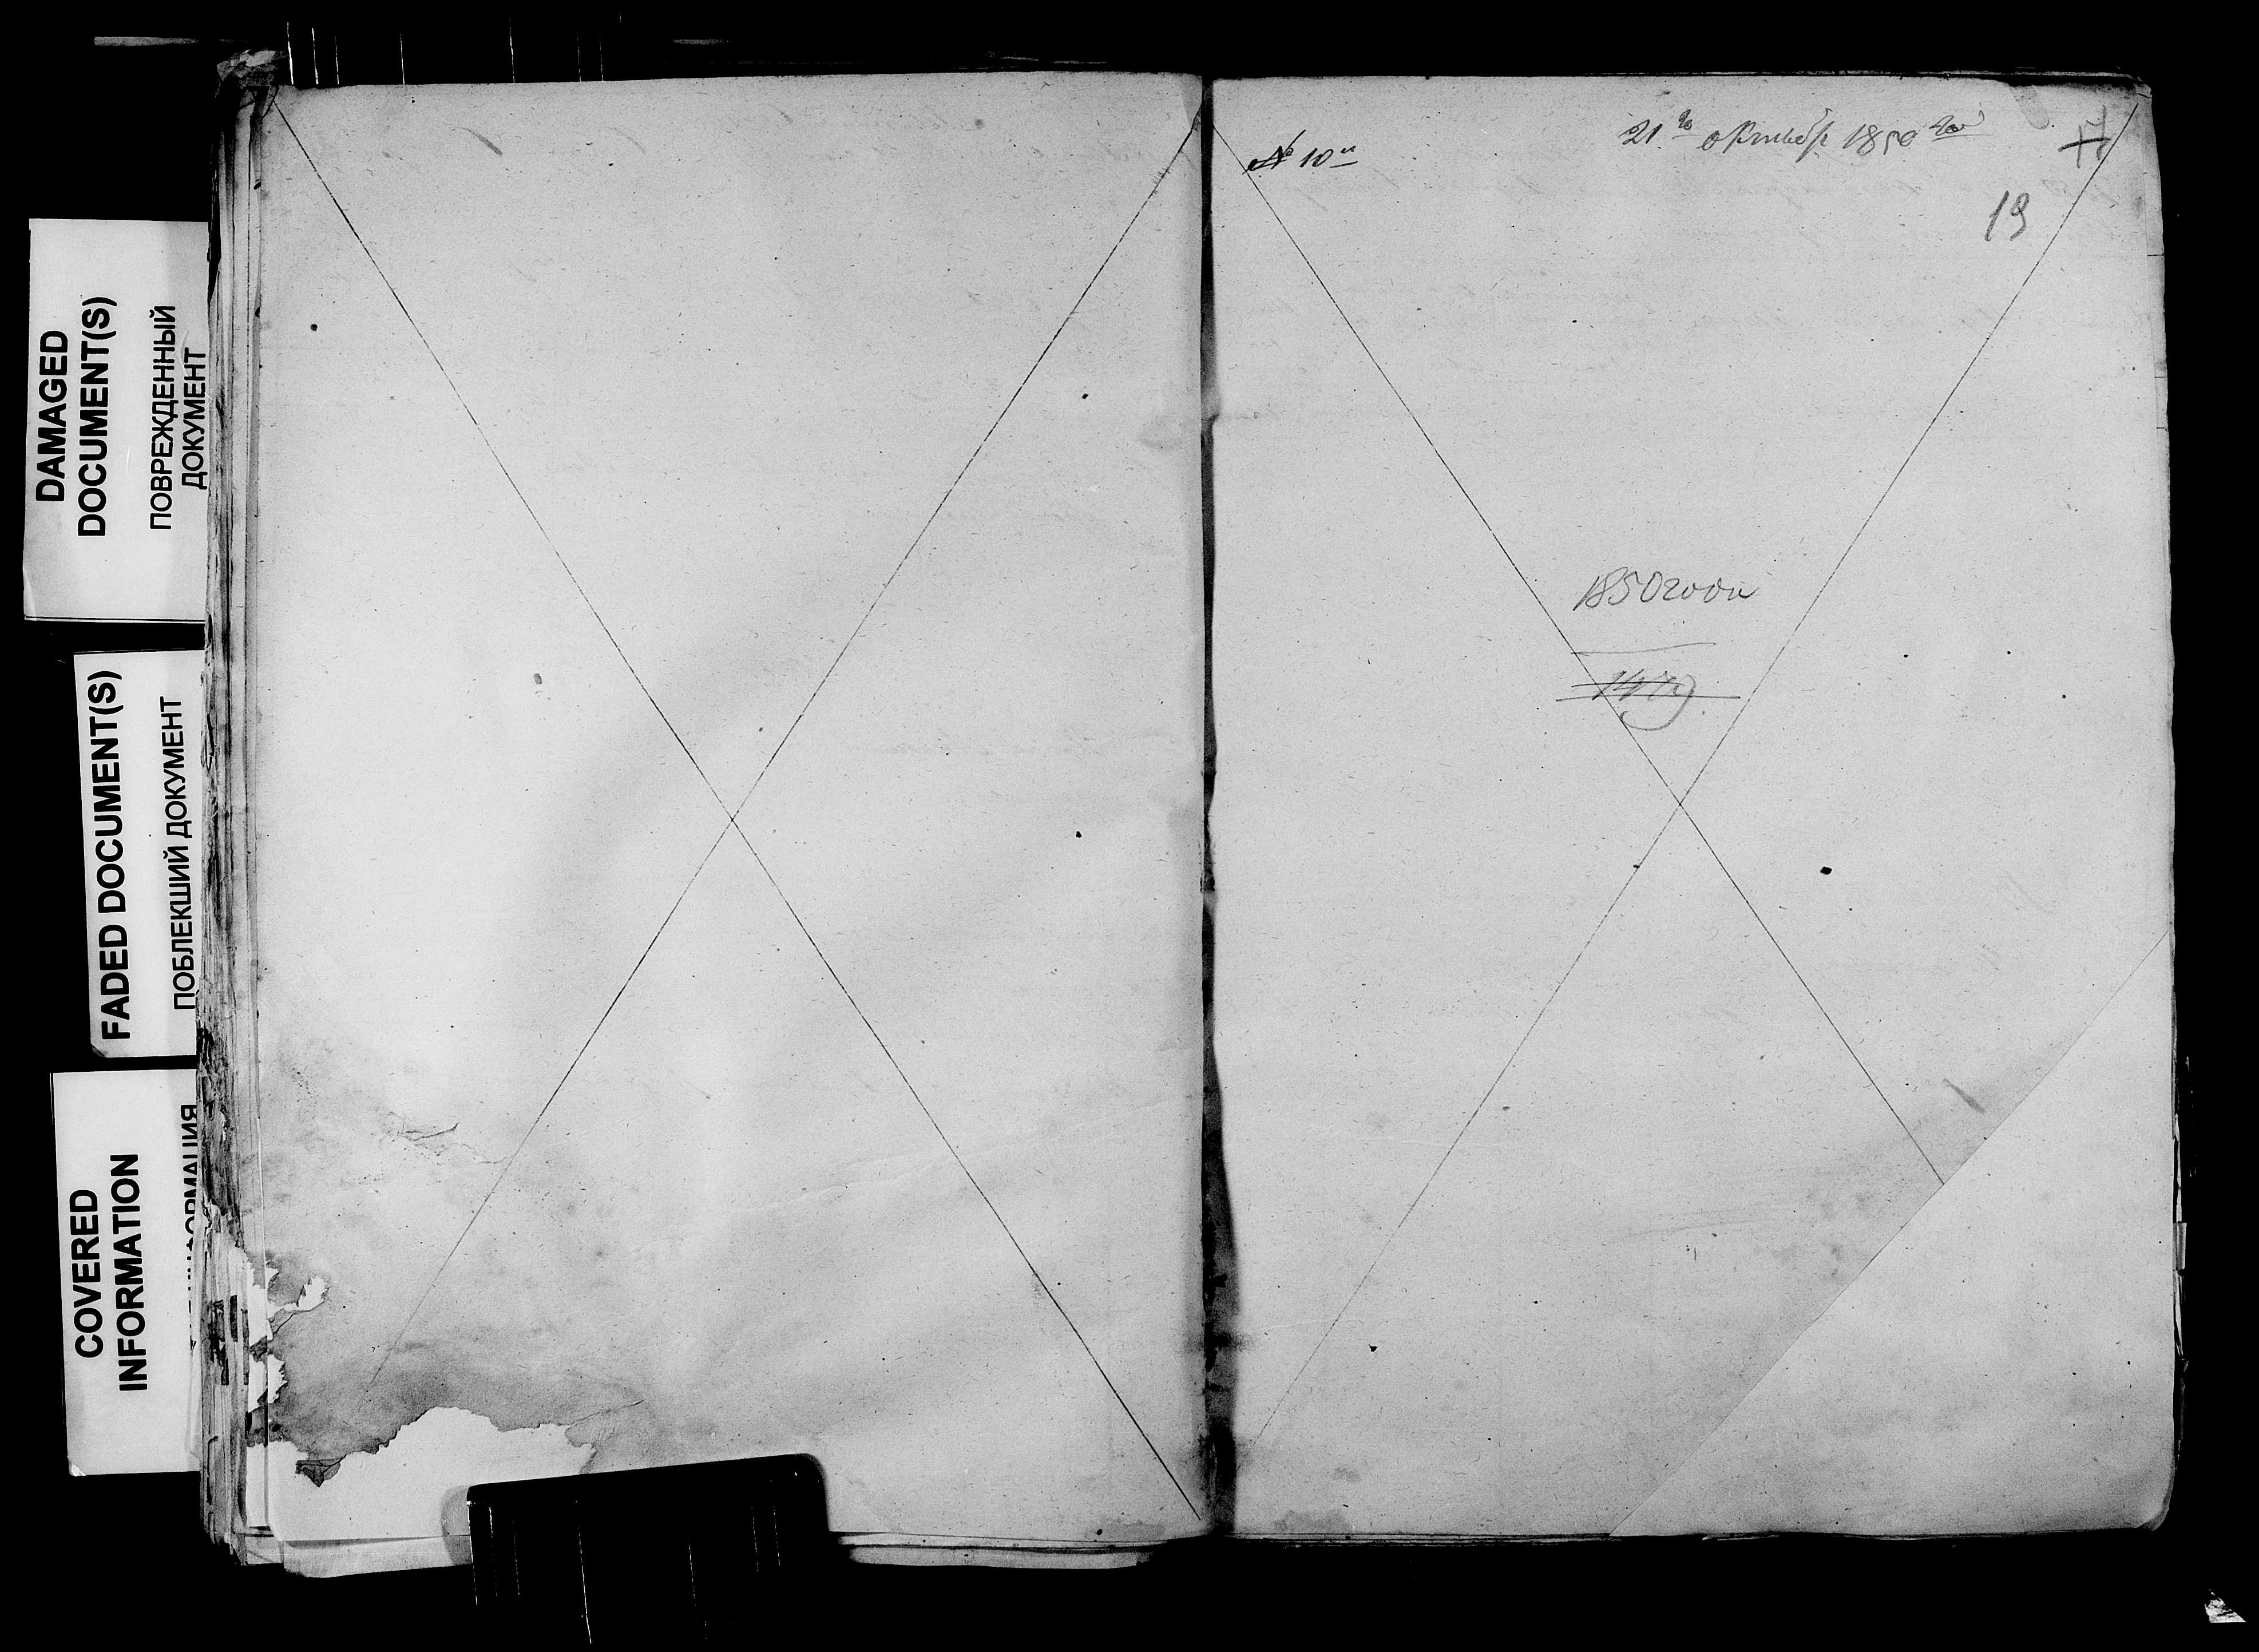 DAMAGED
DOCUMENT(S)
ПОВРЕЖДЕННЫЙ
ДОКУМЕНТ
FADED DOCUMENT(S)
ПОБЛЕКШИЙ ДОКУМЕНТ
COVERED
INFORMATION
№ 10й
21го октября 1850го
17
19
1850 года
1479